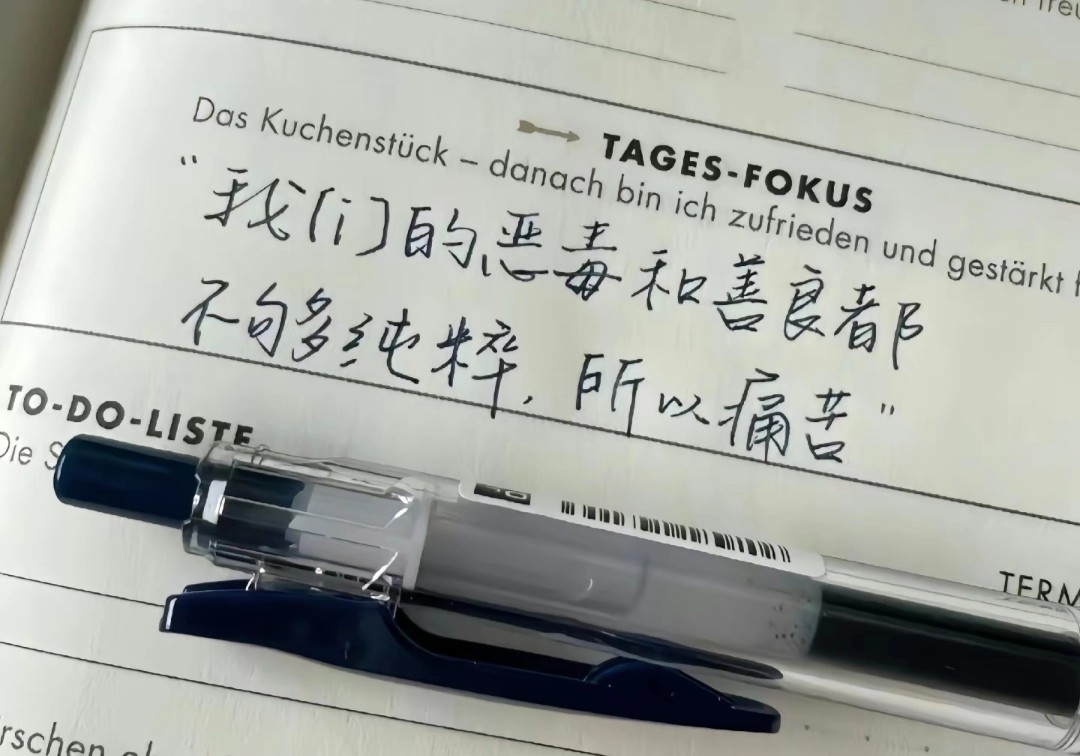 TAGES-FOKUS
Das Kuchenstück – danach bin ich zufrieden und gestärkt f
“我们的恶毒和善良都
不够多纯粹，所以痛苦”
TO-DO-LISTE
Die S
TERM